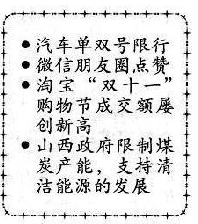 ● 汽车单双号限行
● 微信朋友圈点赞
● 淘宝“双十一”
购物节成交额屡
创新高
● 山西政府限制煤
炭产能，支持清
洁能源的发展